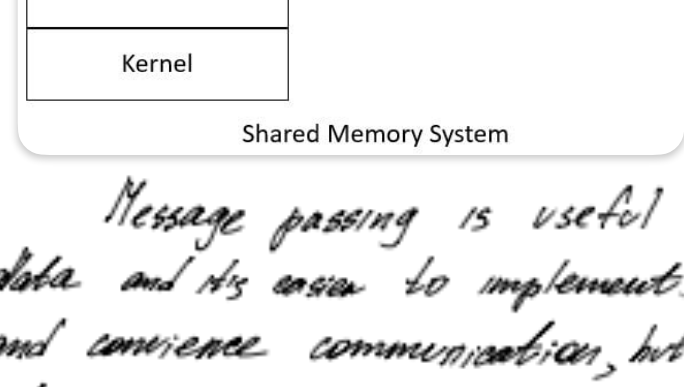 Kernel
Shared Memory System
Message passing is useful
data and its easier to implement.
and convience communication, but